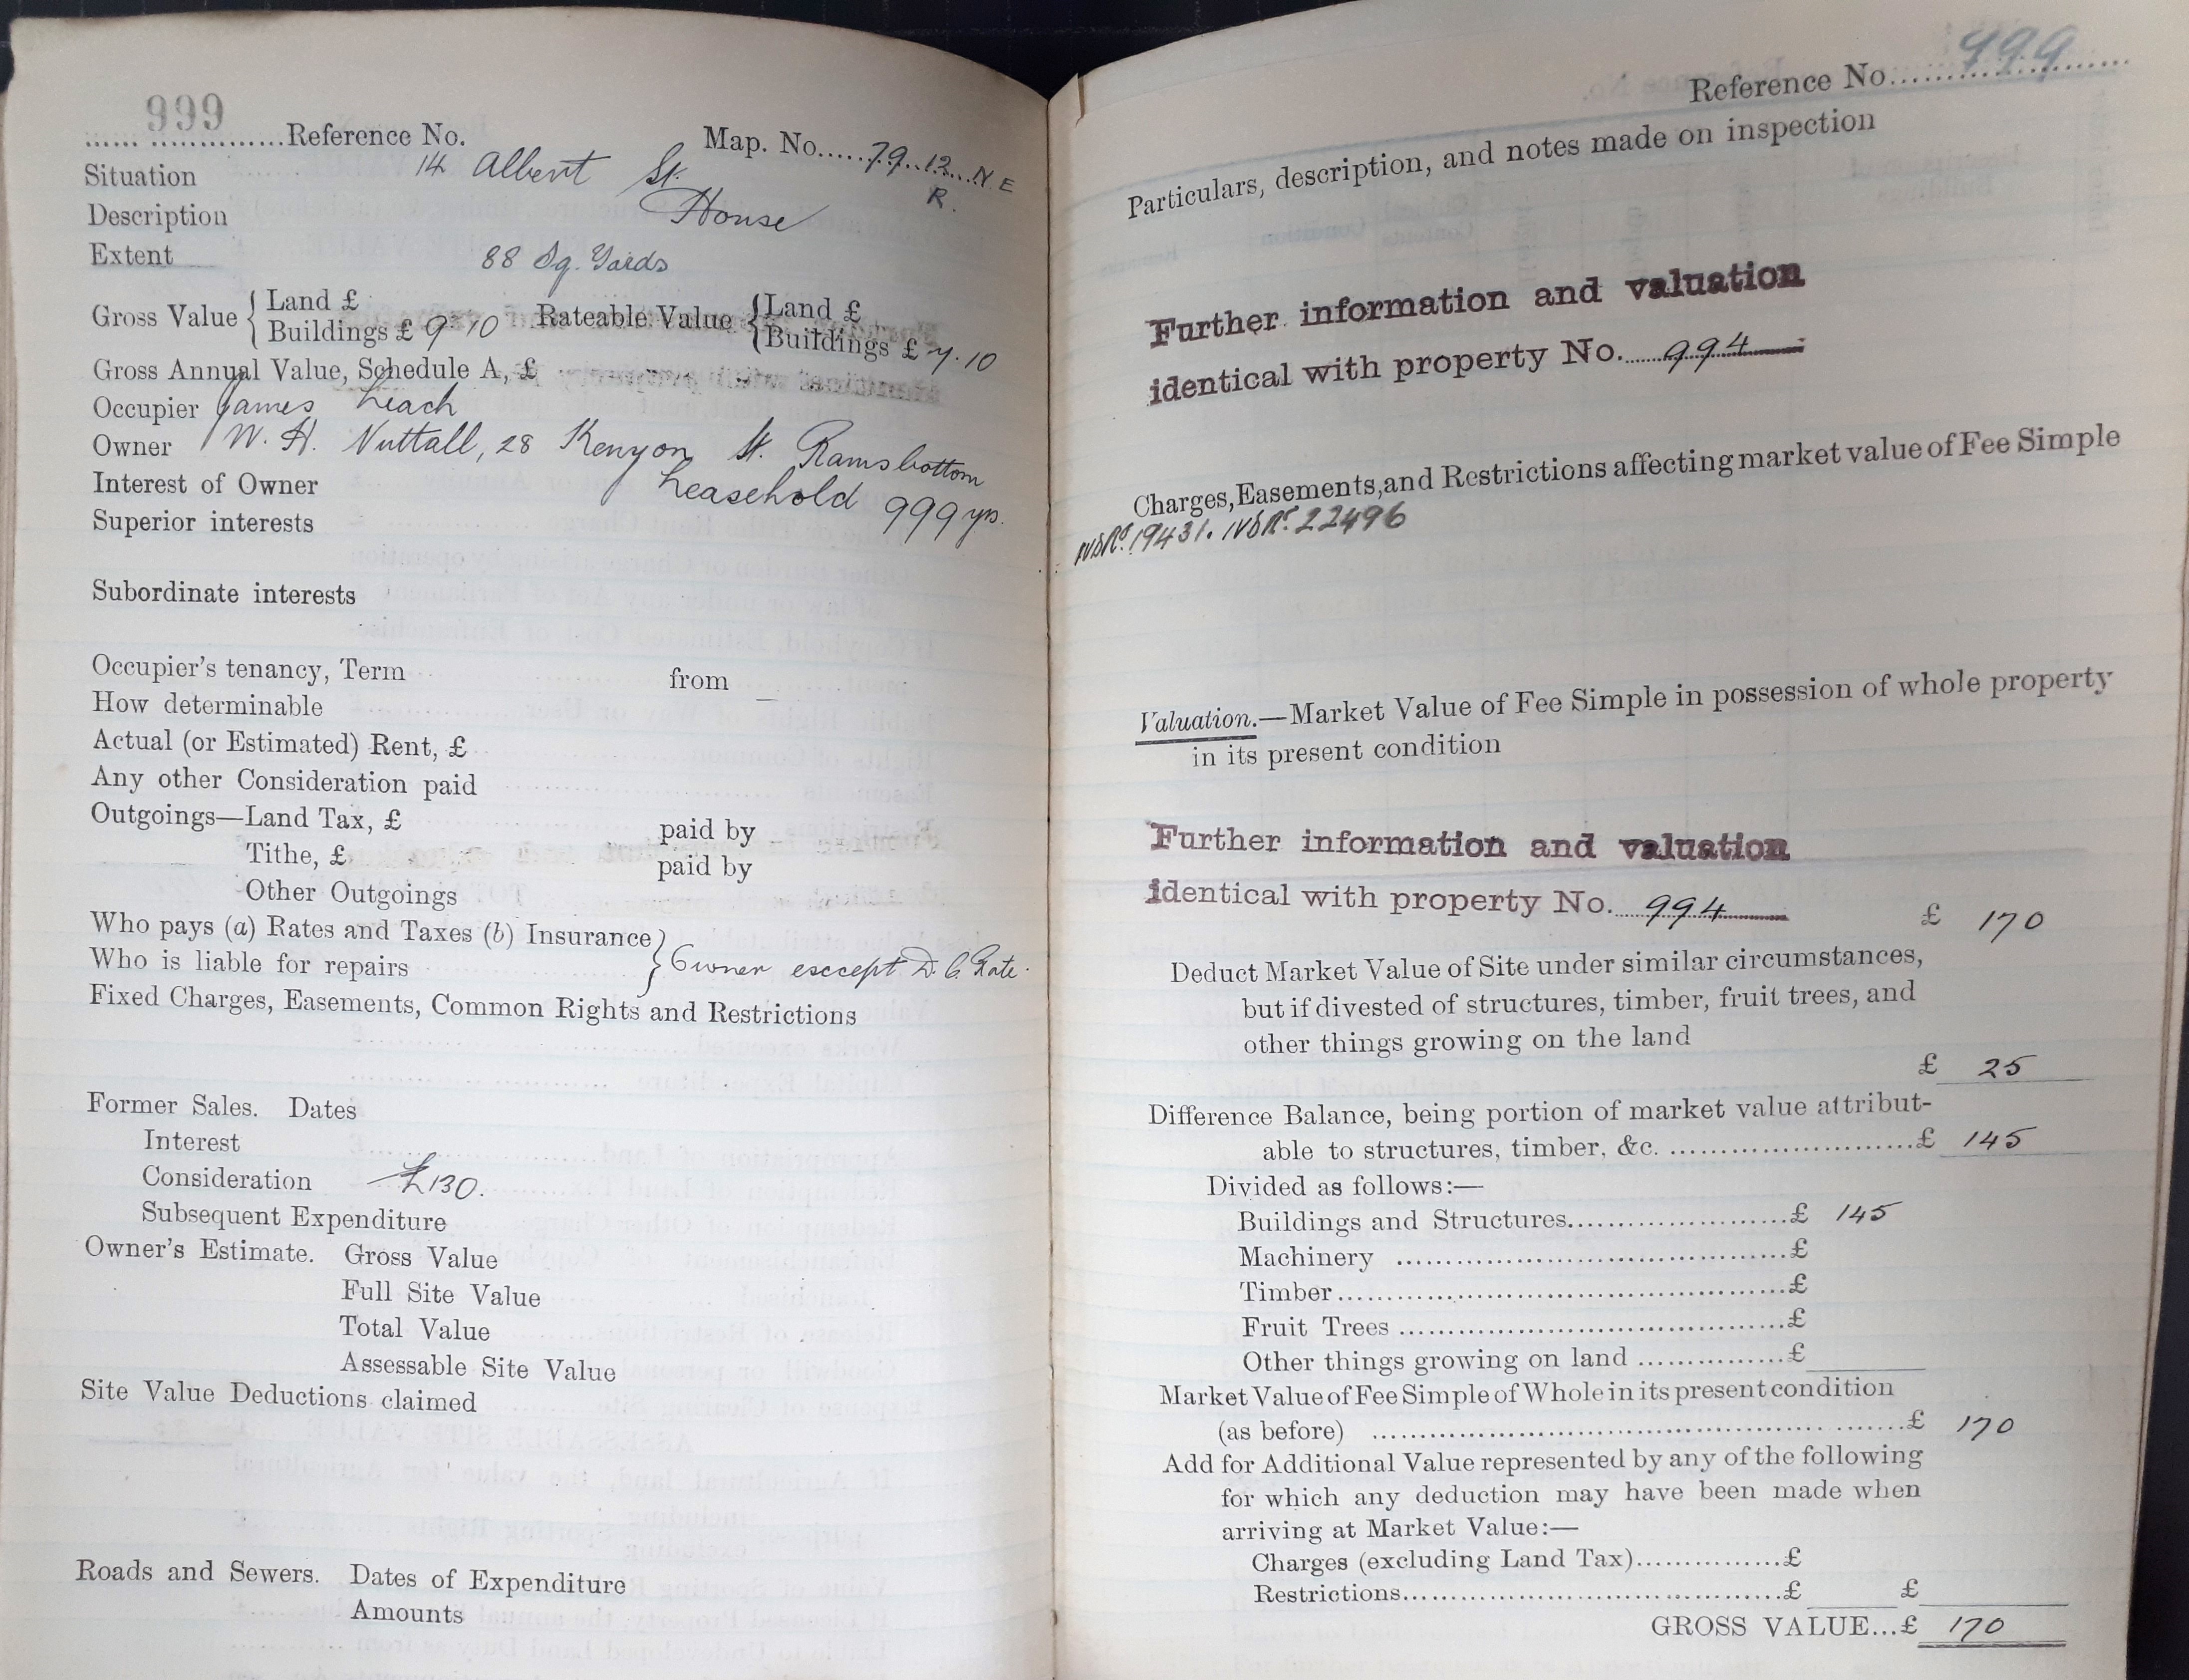 999
Reference No. Map. No. 79.12 N E
R.
Situation 14 Albert St.
Description House
Extent 88 Sq. Yards
Gross Value { Land £
Buildings £ 9-10 Rateable Value { Land £
Buildings £ 7.10
Gross Annual Value, Schedule A, £
Occupier James Leach
Owner W. H. Nuttall, 28 Kenyon St. Ramsbottom
Interest of Owner Leasehold 999 yrs.
Superior interests
Subordinate interests
Occupier's tenancy, Term from
How determinable
Actual (or Estimated) Rent, £
Any other Consideration paid
Outgoings—Land Tax, £ paid by
Tithe, £ paid by
Other Outgoings
Who pays (a) Rates and Taxes (b) Insurance }
Who is liable for repairs } Owner except D. C. Rate.
Fixed Charges, Easements, Common Rights and Restrictions
Former Sales. Dates
Interest
Consideration £130.
Subsequent Expenditure
Owner's Estimate. Gross Value
Full Site Value
Total Value
Assessable Site Value
Site Value Deductions claimed
Roads and Sewers. Dates of Expenditure
Amounts
Reference No. 999
Particulars, description, and notes made on inspection
Further information and valuation
identical with property No. 994
Charges, Easements, and Restrictions affecting market value of Fee Simple
19431. 22496
Valuation.—Market Value of Fee Simple in possession of whole property
in its present condition
Further information and valuation
identical with property No. 994
£ 170
Deduct Market Value of Site under similar circumstances,
but if divested of structures, timber, fruit trees, and
other things growing on the land
£ 25
Difference Balance, being portion of market value attribut-
able to structures, timber, &c. £ 145
Divided as follows:—
Buildings and Structures £ 145
Machinery £
Timber £
Fruit Trees £
Other things growing on land £
Market Value of Fee Simple of Whole in its present condition
(as before) £ 170
Add for Additional Value represented by any of the following
for which any deduction may have been made when
arriving at Market Value:—
Charges (excluding Land Tax) £
Restrictions £ £
GROSS VALUE...£ 170